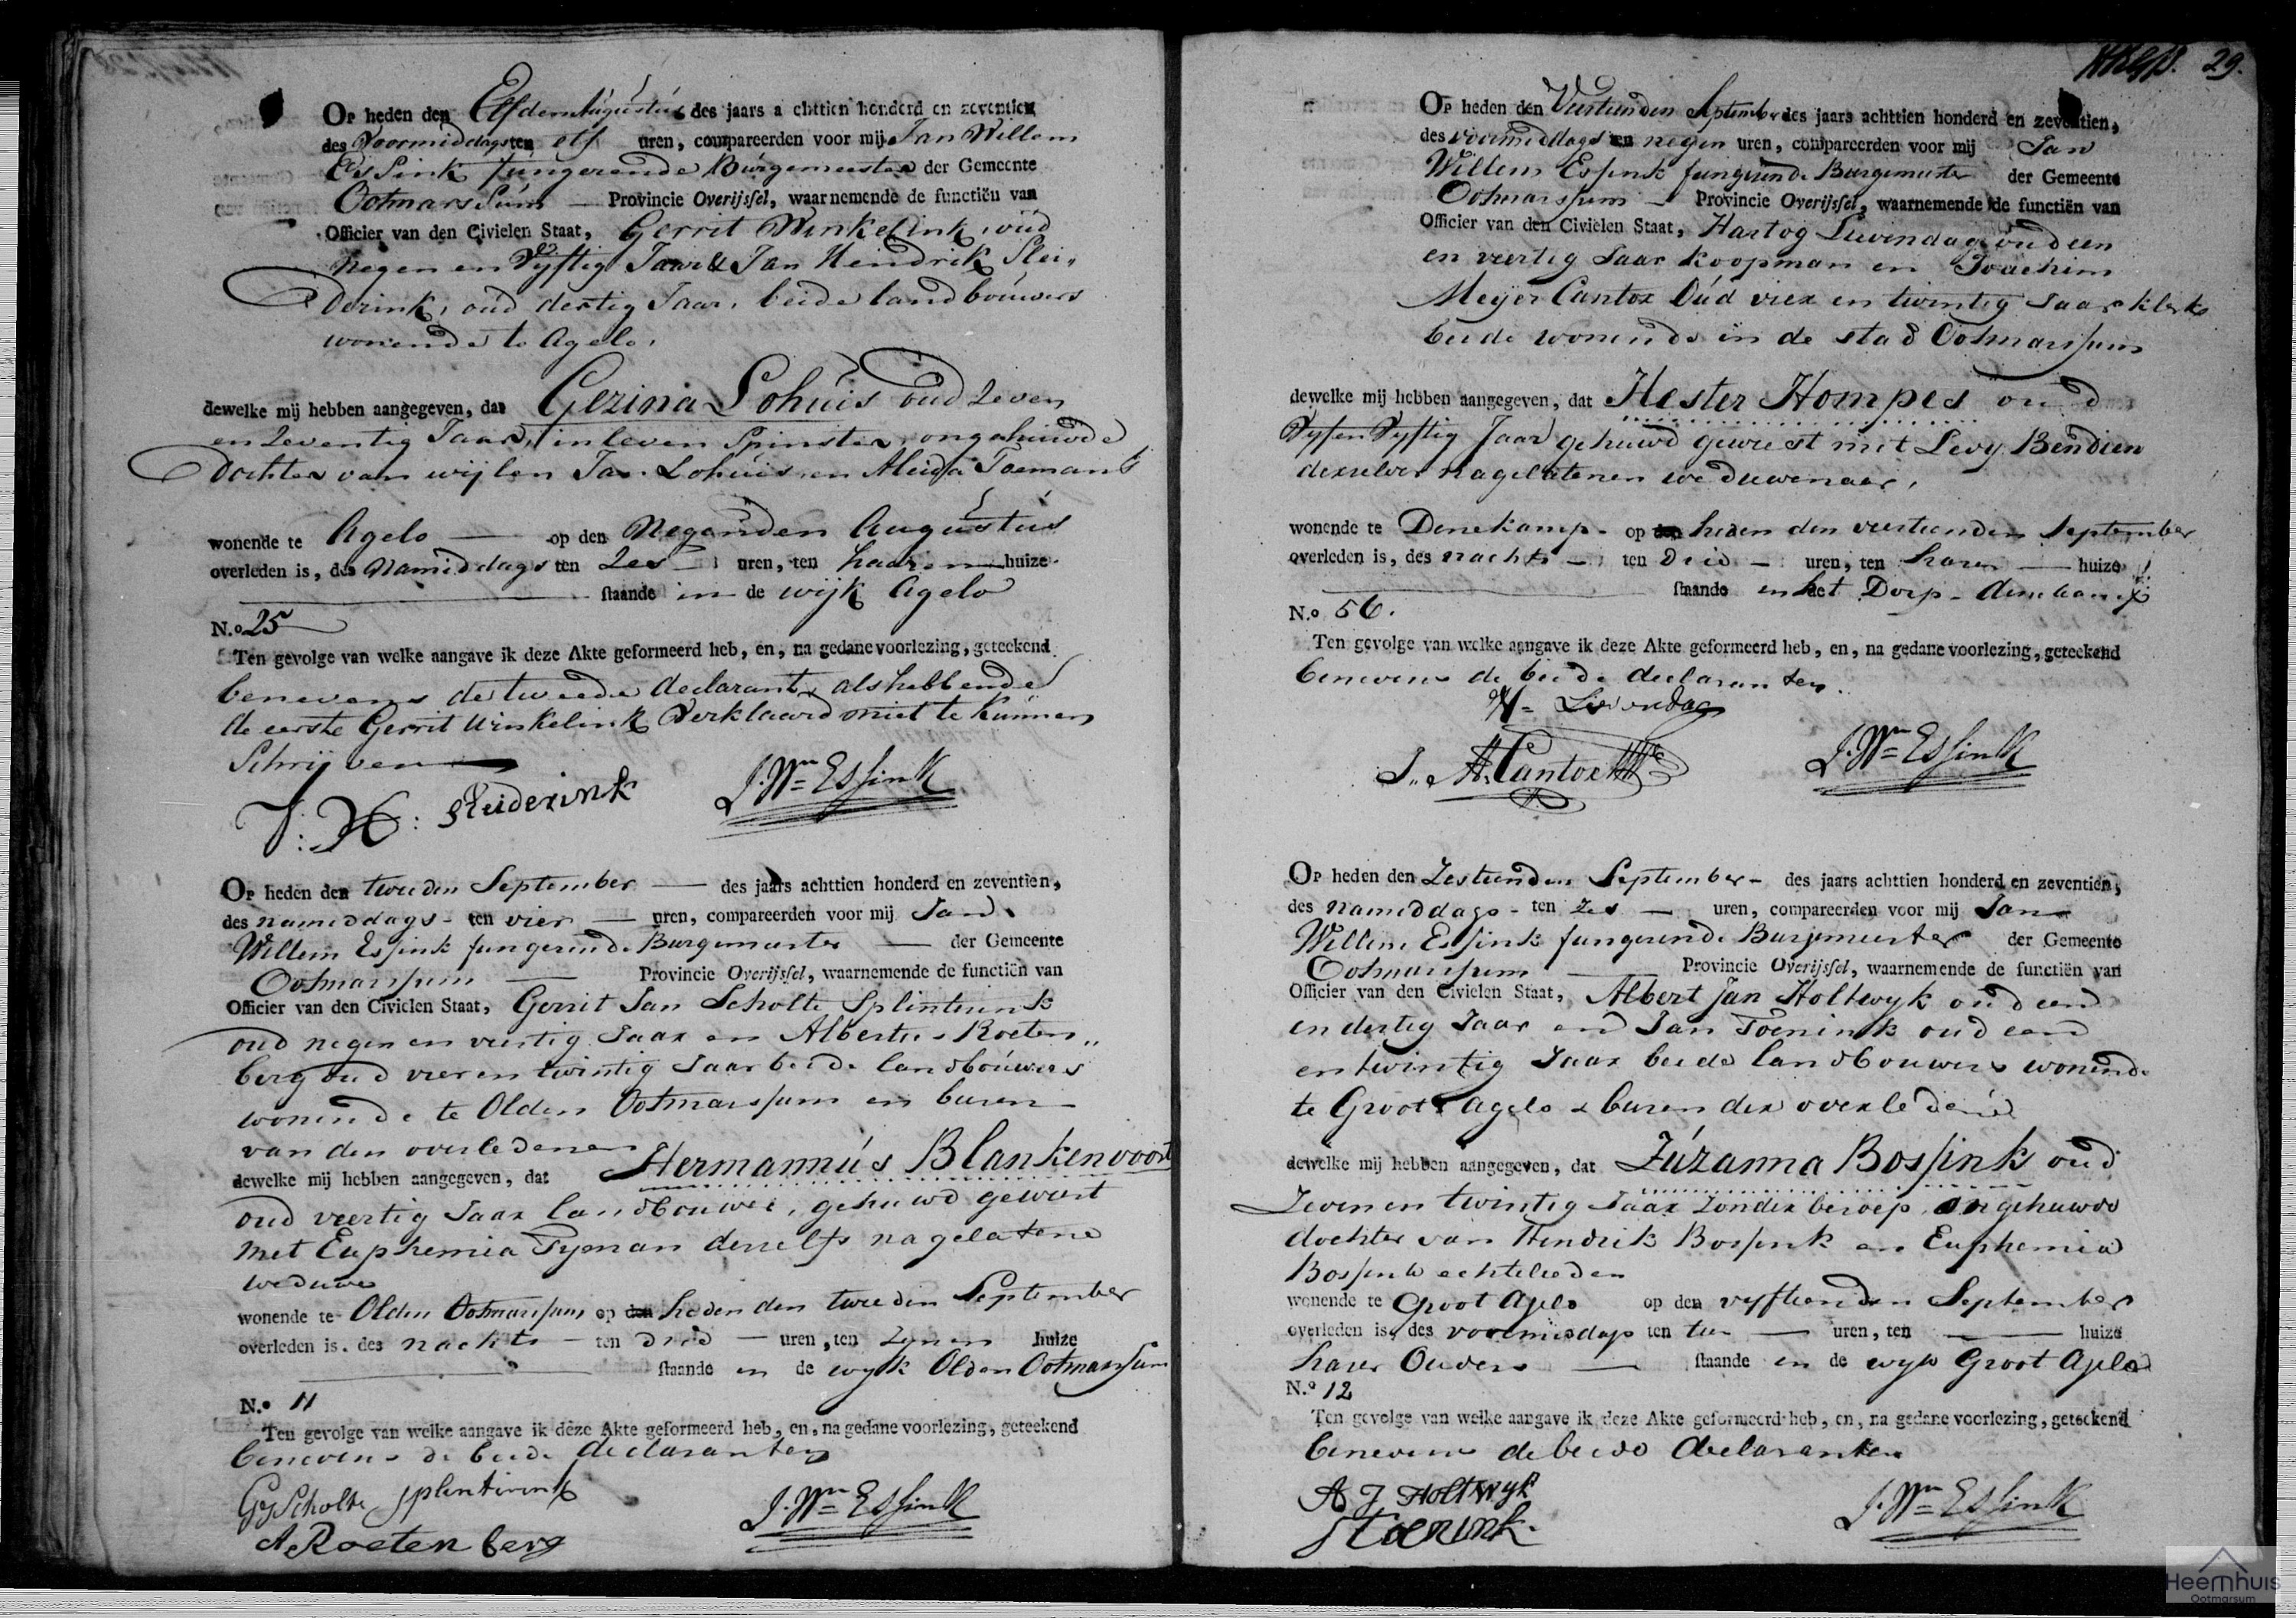 Op heden den Elfden Augustus des jaars achttien honderd en zeventien
des Voormiddags ten elf uren, compareerden voor mij Jan Willem
Essink fungerende Burgemeester der Gemeente
Ootmarssum — Provincie Overijssel, waarnemende de functiën van
Officier van den Civielen Staat, Gerrit Winkelink, oud
negen en Vyftig Jaar & Jan Hendrik Slei„
derink, oud dertig Jaar, beide landbouwers
wonende te Agelo.
dewelke mij hebben aangegeven, dat Gezina Lohuis oud Zeven
en Zeventig Jaar, in leven Spinster, ongehuwde
Dochter van wijlen Jan Lohuis en Aleida Toeman
wonende te Agelo — op den Negenden Augustus
overleden is, des Namiddags ten Zes uren, ten haaren huize
staande in de wijk Agelo
N.o 25
Ten gevolge van welke aangave ik deze Akte geformeerd heb, en, na gedane voorlezing, geteekend
benevens de tweede declarant, als hebbende
de eerste Gerrit Winkelink Verklaard niet te kunnen
Schrijven
J: H: Sleiderink J. Wm Essink
Op heden den tweeden September — des jaars achttien honderd en zeventien,
des namiddags - ten vier — uren, compareerden voor mij Jan
Willem Essink fungerende Burgemeester — der Gemeente
Ootmarssum — Provincie Overijssel, waarnemende de functiën van
Officier van den Civielen Staat, Gerrit Jan Scholte Splinterink
oud negen en veertig Jaar en Albertus Roeten„
berg oud vier en twintig Jaar beide landbouwers
wonende te Olden Ootmarssum en buren
van den overledenen
dewelke mij hebben aangegeven, dat Hermannus Blankenvoort
oud veertig Jaar landbouwer, gehuwd geweest
met Euphemia Tyman deszelfs nagelatene
weduwe
wonende te Olden Ootmarssum op den heden den tweeden September
overleden is, des nachts — ten drie — uren, ten zynen huize
staande in de wyk Olden Ootmarssum
N.o 11
Ten gevolge van welke aangave ik deze Akte geformeerd heb, en, na gedane voorlezing, geteekend
benevens de beide declaranten
GJ Scholte Splinterink
A Roetenberg J. Wm Essink
29.
Op heden den Veertienden September des jaars achttien honderd en zeventien,
des voormiddags ten negen uren, compareerden voor mij Jan
Willem Essink fungerende Burgemeester der Gemeente
Ootmarssum — Provincie Overijssel, waarnemende de functiën van
Officier van den Civielen Staat, Hartog Leevendag oud een
en veertig Jaar koopman en Joachim
Meyer Cantor Oud vier en twintig Jaar klerk
beide wonende in de stad Ootmarssum
dewelke mij hebben aangegeven, dat Hester Hompes oud
Vyf en Vyftig Jaar gehuwd geweest met Levy Bendien
deszelver nagelatenen weduwenaar,
wonende te Denekamp - op den heden den veertienden September
overleden is, des nachts — ten Drie — uren, ten haren — huize
staande in het Dorp - Denekamp
N.o 56.
Ten gevolge van welke aangave ik deze Akte geformeerd heb, en, na gedane voorlezing, geteekend
benevens de beide declaranten.
H= Leevendag
J. M. Cantor J. Wm Essink
Op heden den Zestienden September - des jaars achttien honderd en zeventien,
des namiddags - ten zes — uren, compareerden voor mij Jan
Willem Essink fungerende Burgemeester der Gemeente
Ootmarssum — Provincie Overijssel, waarnemende de functiën van
Officier van den Civielen Staat, Albert Jan Holtwyk oud een
en dertig Jaar en Jan Toenink oud een
en twintig Jaar beide landbouwers wonende
te Groot Agelo & buren der overledene
dewelke mij hebben aangegeven, dat Zúzanna Bossink oud
Zeven en twintig Jaar zonder beroep, ongehuwde
dochter van Hendrik Bossink en Euphemia
Bossink echtelieden
wonende te Groot Agelo op den vyftienden September
overleden is, des voormiddags ten tien — uren, ten — huize
harer Ouders — staande in de wyk Groot Agelo
N.o 12
Ten gevolge van welke aangave ik deze Akte geformeerd heb, en, na gedane voorlezing, geteekend
benevens de beide declaranten
A J Holtwyk
J Toenink. J. Wm Essink
Heemhuis
Ootmarsum